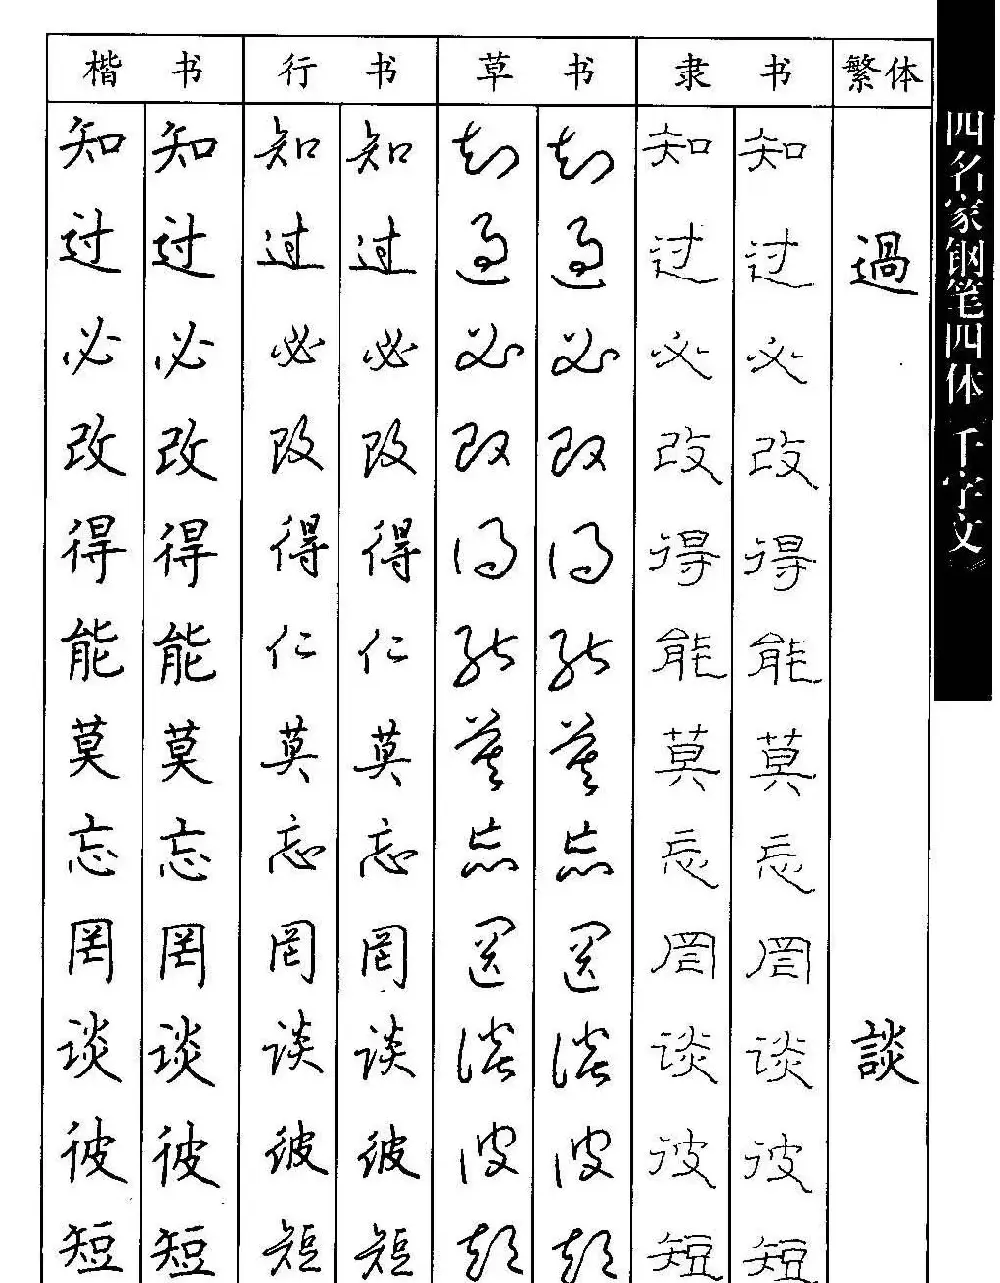 楷书 行书 草书 隶书 繁体
知 知 知 知 知 知 知 知
过 过 过 过 过 过 过 过 過
必 必 必 必 必 必 必 必
改 改 改 改 改 改 改 改
得 得 得 得 得 得 得 得
能 能 仁 仁 能 能 能 能
莫 莫 莫 莫 莫 莫 莫 莫
忘 忘 忘 忘 忘 忘 忘 忘
罔 罔 罔 罔 罔 罔 罔 罔
谈 谈 谈 谈 谈 谈 谈 谈 談
彼 彼 彼 彼 彼 彼 彼 彼
短 短 短 短 短 短 短 短
四名家钢笔四体 千字文